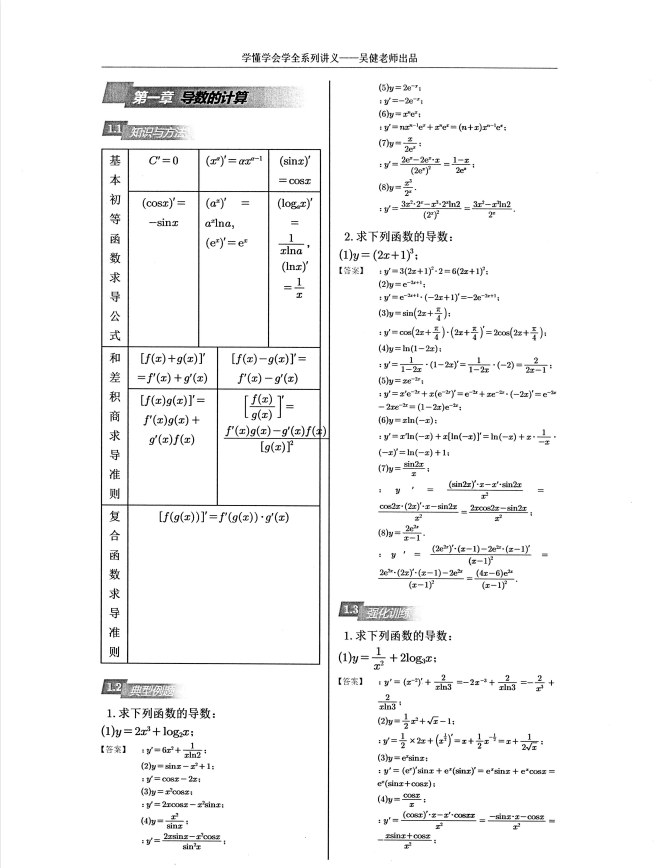 学懂学会学全系列讲义——吴健老师出品
第一章 导数的计算
1.1 知识与方法
基本初等函数求导公式
C'=0
(x^α)'=αx^(α-1)
(sinx)'
=cosx
(cosx)'=
-sinx
(a^x)' =
a^x lna,
(e^x)'=e^x
(log_a x)'
=
1/(xlna),
(lnx)'
=1/x
和差积商求导准则
[f(x)+g(x)]'
=f'(x)+g'(x)
[f(x)-g(x)]'=
f'(x)-g'(x)
[f(x)g(x)]'=
f'(x)g(x)+
g'(x)f(x)
[f(x)/g(x)]'=
(f'(x)g(x)-g'(x)f(x))/[g(x)]²
复合函数求导准则
[f(g(x))]'=f'(g(x))·g'(x)
1.2 典型例题
1. 求下列函数的导数:
(1)y=2x³+log₂x;
【答案】 :y'=6x²+1/(xln2);
(2)y=sinx-x²+1;
:y'=cosx-2x;
(3)y=x²cosx;
:y'=2xcosx-x²sinx;
(4)y=x²/sinx;
:y'=(2xsinx-x²cosx)/sin²x;
(5)y=2e^(-x);
:y'=-2e^(-x);
(6)y=x^n e^x;
:y'=nx^(n-1)e^x+x^n e^x=(n+x)x^(n-1)e^x;
(7)y=x/(2e^x);
:y'=(2e^x-2e^x·x)/(2e^x)²=(1-x)/(2e^x);
(8)y=x³/2^x.
:y'=(3x²·2^x-x³·2^x ln2)/(2^x)²=(3x²-x³ln2)/2^x.
2. 求下列函数的导数:
(1)y=(2x+1)³;
【答案】 :y'=3(2x+1)²·2=6(2x+1)²;
(2)y=e^(-2x+1);
:y'=e^(-2x+1)·(-2x+1)'=-2e^(-2x+1);
(3)y=sin(2x+π/4);
:y'=cos(2x+π/4)·(2x+π/4)'=2cos(2x+π/4);
(4)y=ln(1-2x);
:y'=1/(1-2x)·(1-2x)'=1/(1-2x)·(-2)=2/(2x-1);
(5)y=xe^(-2x);
:y'=x'e^(-2x)+x(e^(-2x))'=e^(-2x)+xe^(-2x)·(-2x)'=e^(-2x)
-2xe^(-2x)=(1-2x)e^(-2x);
(6)y=xln(-x);
:y'=x'ln(-x)+x[ln(-x)]'=ln(-x)+x·1/(-x)·
(-x)'=ln(-x)+1;
(7)y=sin2x/x;
: y ' = ((sin2x)'·x-x'·sin2x)/x² =
(cos2x·(2x)'·x-sin2x)/x²=(2xcos2x-sin2x)/x²;
(8)y=2e^(2x)/(x-1).
: y ' = ((2e^(2x))'·(x-1)-2e^(2x)·(x-1)')/(x-1)² =
(2e^(2x)·(2x)'·(x-1)-2e^(2x))/(x-1)²=((4x-6)e^(2x))/(x-1)².
1.3 强化训练
1. 求下列函数的导数:
(1)y=1/x²+2log₃x;
【答案】 :y'=(x^(-2))'+2/(xln3)=-2x^(-3)+2/(xln3)=-2/x³+
2/(xln3);
(2)y=1/2 x²+√x-1;
:y'=1/2×2x+(x^(1/2))'=x+1/2 x^(-1/2)=x+1/(2√x);
(3)y=e^x sinx;
:y'=(e^x)'sinx+e^x(sinx)'=e^x sinx+e^x cosx=
e^x(sinx+cosx);
(4)y=cosx/x;
:y'=((cosx)'·x-x'·cosx)/x²=(-sinx·x-cosx)/x²=
-(xsinx+cosx)/x²;